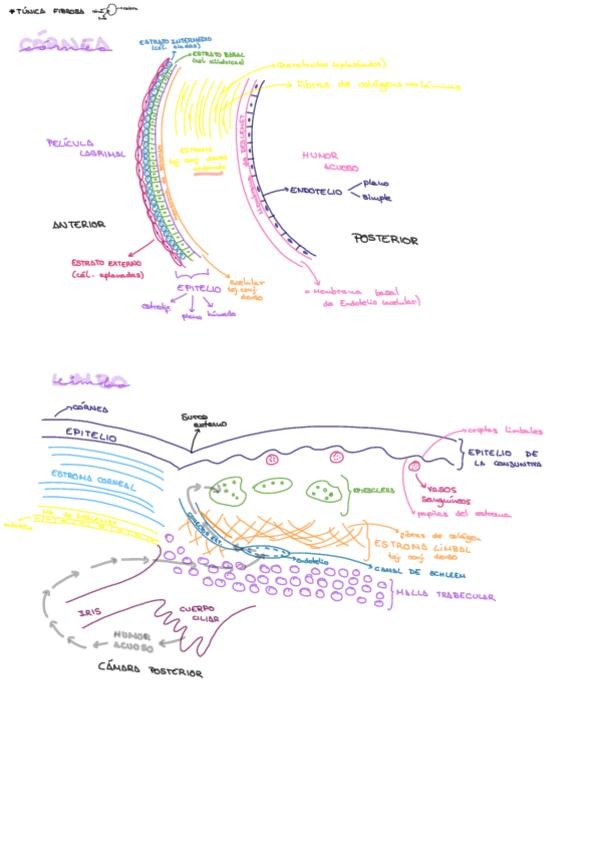 * TÚNICA FIBROSA
CÓRNEA
ESTRATO INTERMEDIO
(cél. aladas)
ESTRATO BASAL
(cél cilíndricas)
Fibras de colágeno
PELÍCULA
LAGRIMAL
ESTROMA
tej conj denso
Membrana de DESCEMET
HUMOR
ACUOSO
ENDOTELIO
plano
simple
ANTERIOR
POSTERIOR
ESTRATO EXTERNO
(cél. aplanadas)
EPITELIO
Acelular
tej conj
denso
estratif.
plano
húmedo
= Membrana basal
do Endotelio (acelular)
LIMBO
CÓRNEA
EPITELIO
Surco
externo
criptas limbales
EPITELIO DE
LA CONJUNTIVA
ESTROMA CORNEAL
EPIESCLERA
VASOS
Sanguíneos
papilas del estroma
fibras de colágeno
ESTROMA LIMBAL
tej conj denso
Endotelio
CANAL DE SCHLEEM
MALLA TRABECULAR
IRIS
CUERPO
CILIAR
HUMOR
ACUOSO
CÁMARA POSTERIOR